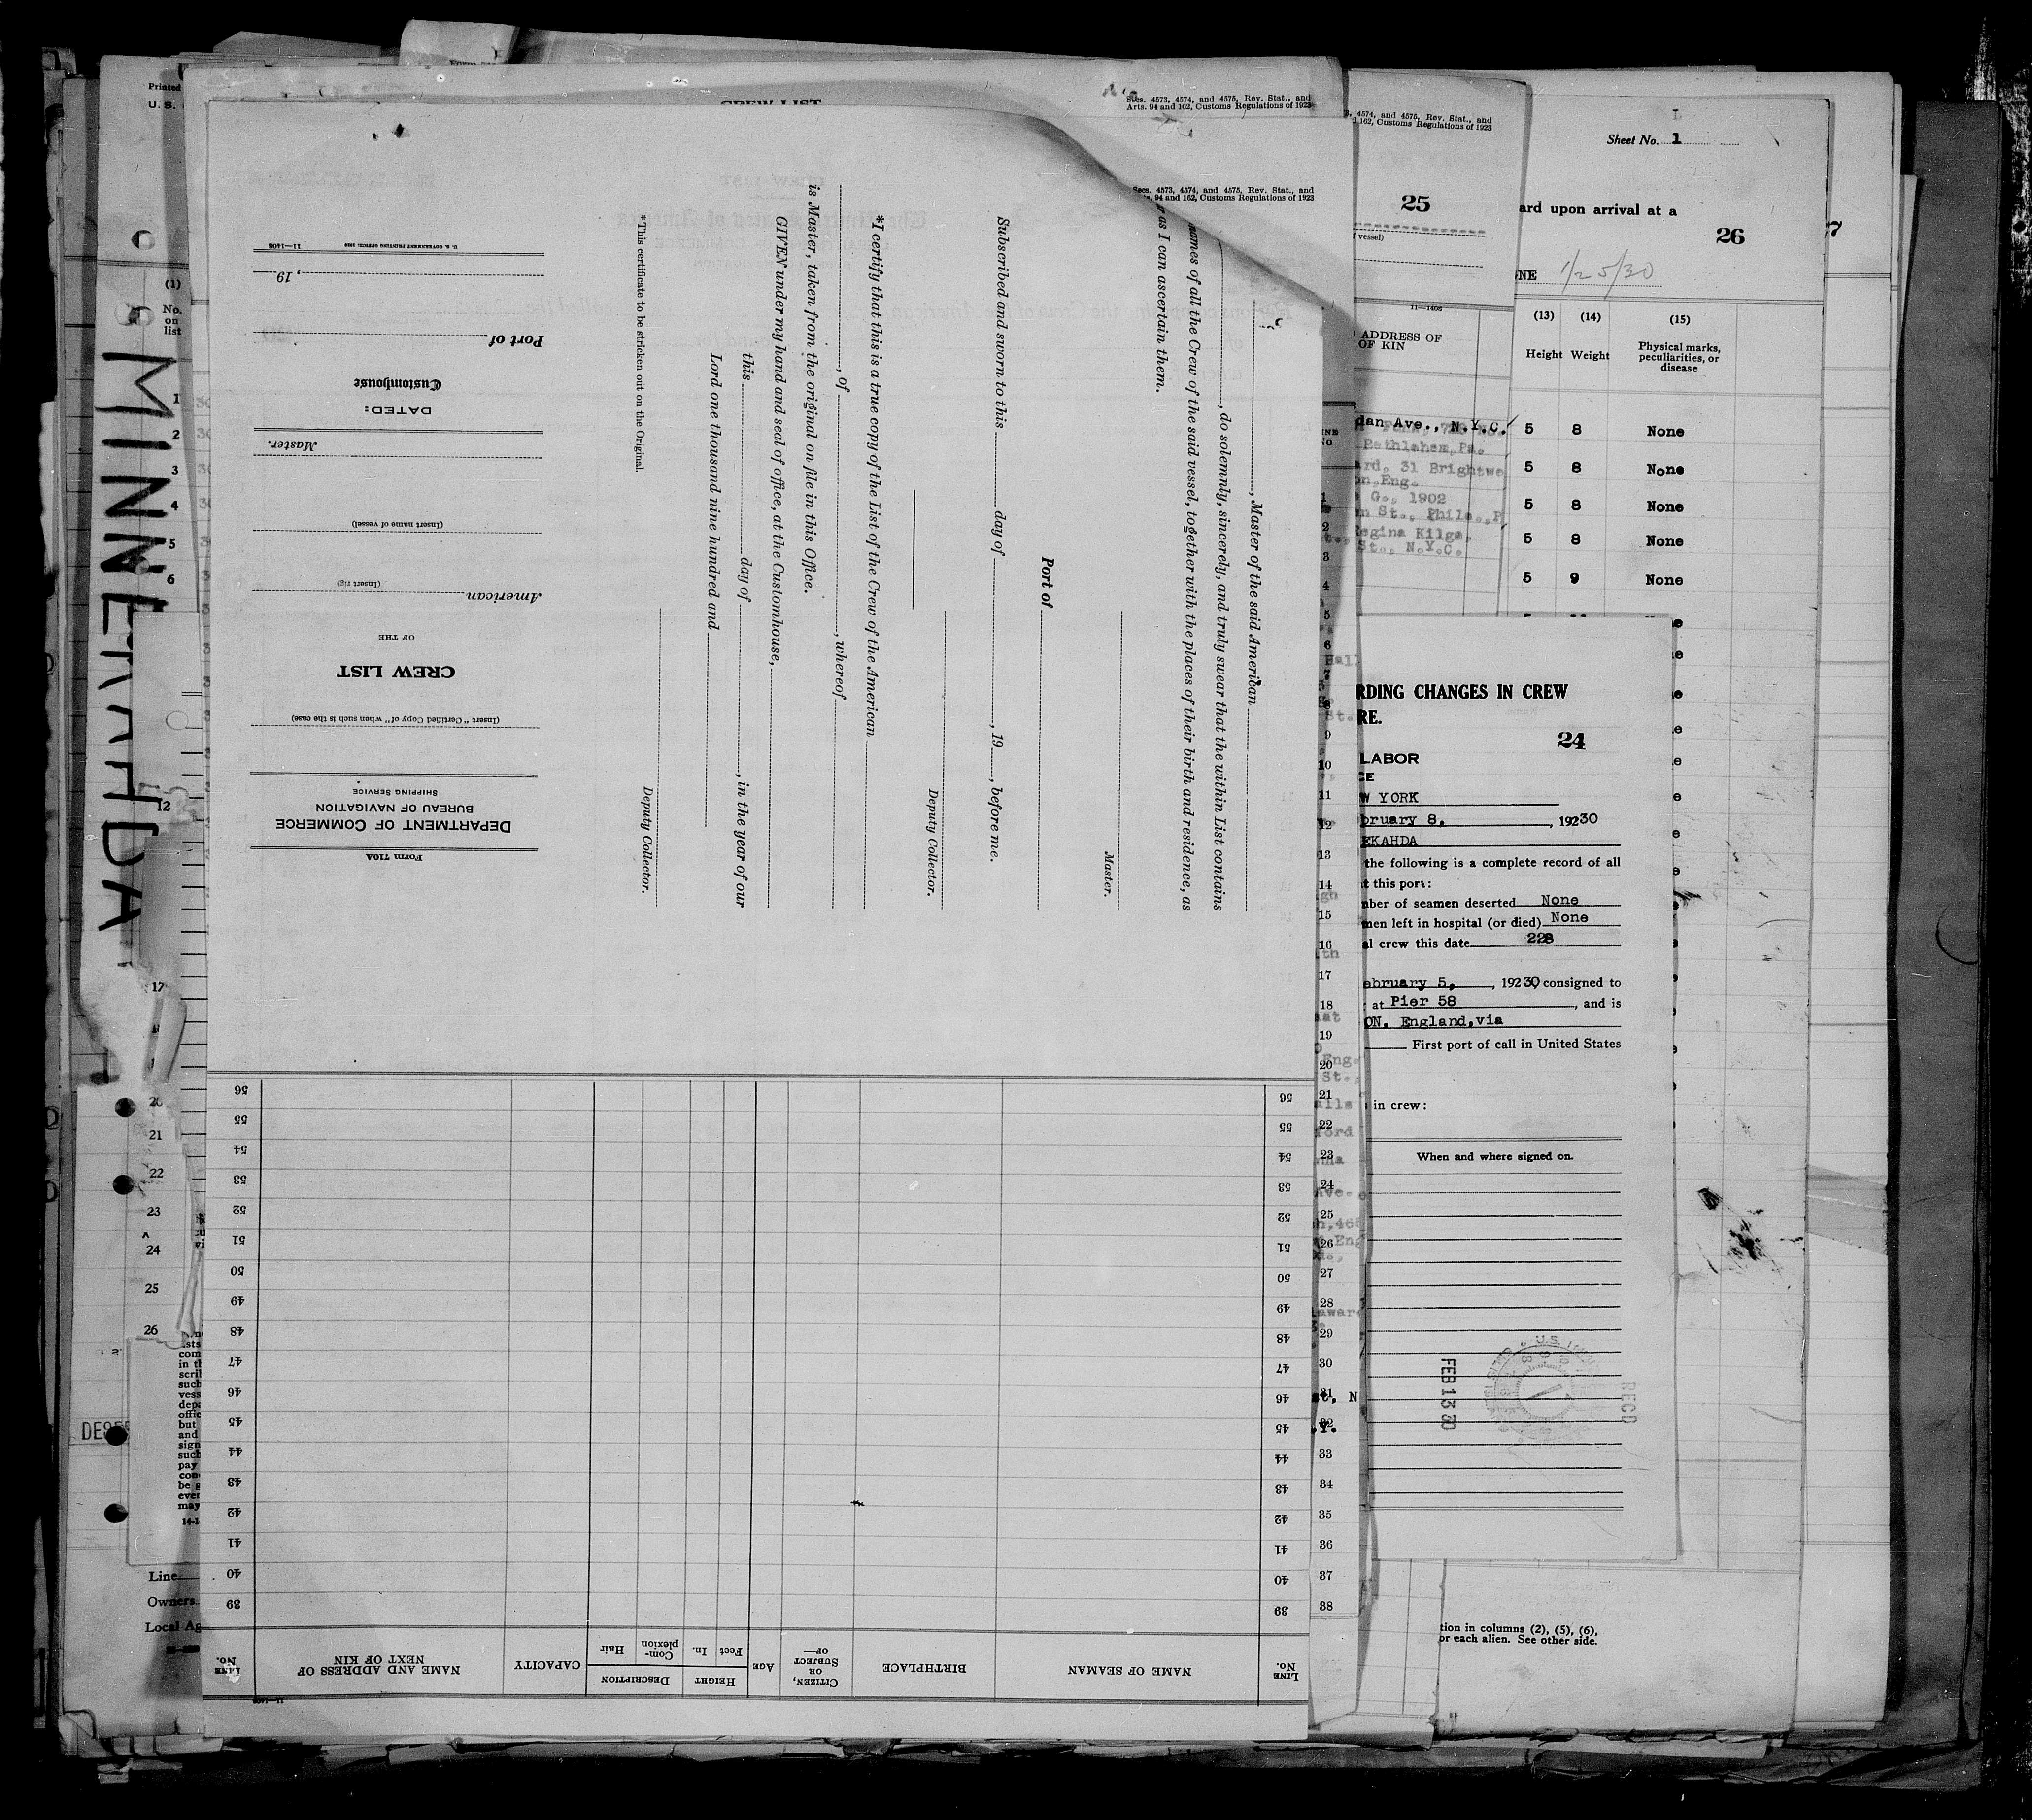 Printed
U. S.
(1)
No.
on
list
1
2
3
4
5
6
12
17
21
22
23
24
25
26
MINNEKAHDA
in th
scri
such
vess
depa
offic
but
and
sign
such
pay
con
be g
even
may
14-1
Line
Owners
Local Ag
CREW LIST
Secs. 4573, 4574, and 4575, Rev. Stat., and
Arts. 94 and 162, Customs Regulations of 1923
Secs. 4573, 4574, and 4575, Rev. Stat., and
94 and 162, Customs Regulations of 1923
, Master of the said American
, do solemnly, sincerely, and truly swear that the within List contains
names of all the Crew of the said vessel, together with the places of their birth and residence, as
r as I can ascertain them.
Master.
Port of
Subscribed and sworn to this day of , 19 , before me.
Deputy Collector.
*I certify that this is a true copy of the List of the Crew of the American
, of , whereof
is Master, taken from the original on file in this Office.
GIVEN under my hand and seal of office, at the Customhouse,
this day of , in the year of our
Lord one thousand nine hundred and
Deputy Collector.
*This certificate to be stricken out on the Original.
Form 710A
DEPARTMENT OF COMMERCE
BUREAU OF NAVIGATION
SHIPPING SERVICE
(Insert "Certified Copy of" when such is the case)
CREW LIST
OF THE
American
(Insert rig)
(Insert name of vessel)
Master.
DATED:
Customhouse
Port of
, 19
U. S. GOVERNMENT PRINTING OFFICE: 1929 11—1408
LINE No.
NAME OF SEAMAN
BIRTHPLACE
CITIZEN, OR SUBJECT OF—
AGE
HEIGHT
Feet
In.
DESCRIPTION
Complexion
Hair
CAPACITY
NAME AND ADDRESS OF NEXT OF KIN
LINE No.
39 39
40 40
41 41
42 42
43 43
44 44
45 45
46 46
47 47
48 48
49 49
50 50
51 51
52 52
53 53
54 54
55 55
56 56
1
2
3
4
5
6
7
8
9
10
11
12
13
14
15
16
17
18
19
20
21
22
23
24
25
26
27
28
29
30
31
32
33
34
35
36
37
38
4574, and 4575, Rev. Stat., and
162, Customs Regulations of 1923
25
vessel)
11—1408
ADDRESS OF
OF KIN
dan Ave., N.Y.C.
Bethlehem, Pa.
ard, 31 Brightwe
on, Eng.
G., 1902
n St., Phila., P
Regina Kilga,
St., N.Y.C.
Sheet No. 1
ard upon arrival at a
26
NE 1/25/30
(13) (14) (15)
Height Weight Physical marks,
peculiarities, or
disease
5 8 None
5 8 None
5 8 None
5 8 None
5 9 None
RDING CHANGES IN CREW
RE.
24
LABOR
CE
W YORK
bruary 8, , 1930
EKAHDA
the following is a complete record of all
t this port:
nber of seamen deserted None
men left in hospital (or died) None
al crew this date 228
ebruary 5, , 1930, consigned to
at Pier 58 , and is
ON, England, via
First port of call in United States
in crew:
When and where signed on.
FEB 13 30
RECD
tion in columns (2), (5), (6),
or each alien. See other side.